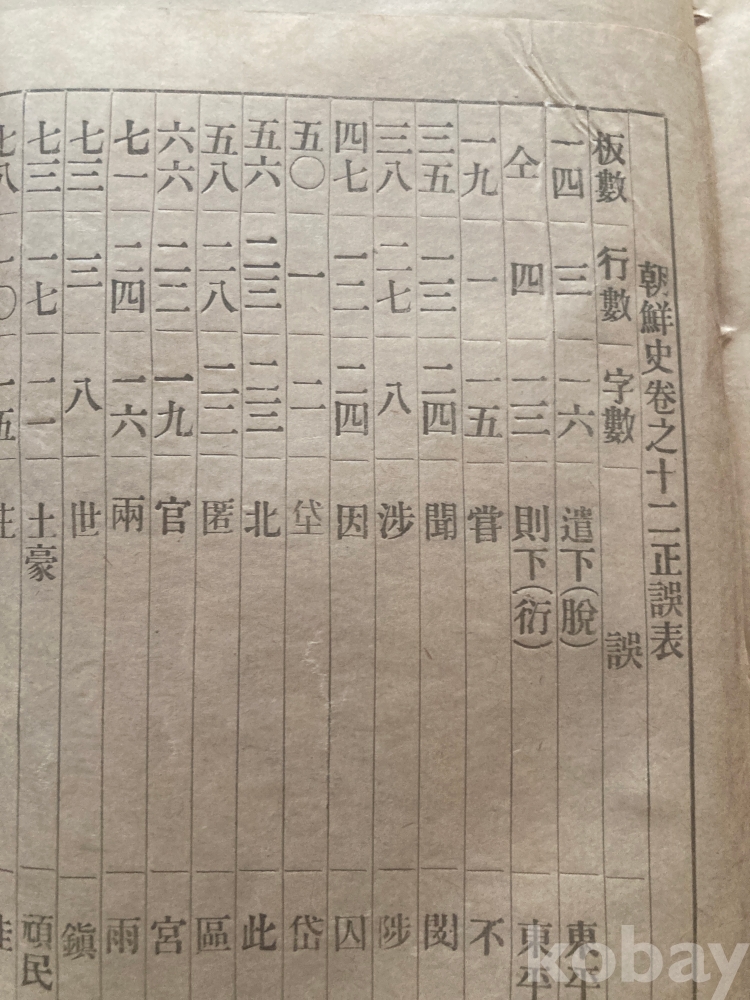 朝鮮史卷之十二正誤表
板數 行數 字數 誤
一四 三 一六 遣下(脫) 東平
仝 四 一三 則下(衍) 東平
一九 一 一五 嘗 不
三五 一三 二四 聞 閔
三八 二七 八 涉 陟
四七 一二 二四 因 囚
五〇 一 二 垈 岱
五六 二三 二三 北 此
五八 二八 二二 匿 區
六六 二二 一九 官 宮
七一 二四 一六 兩 雨
七三 三 八 世 鎭
七三 一七 二一 土豪 頑民
七八 一〇 一五
kobay